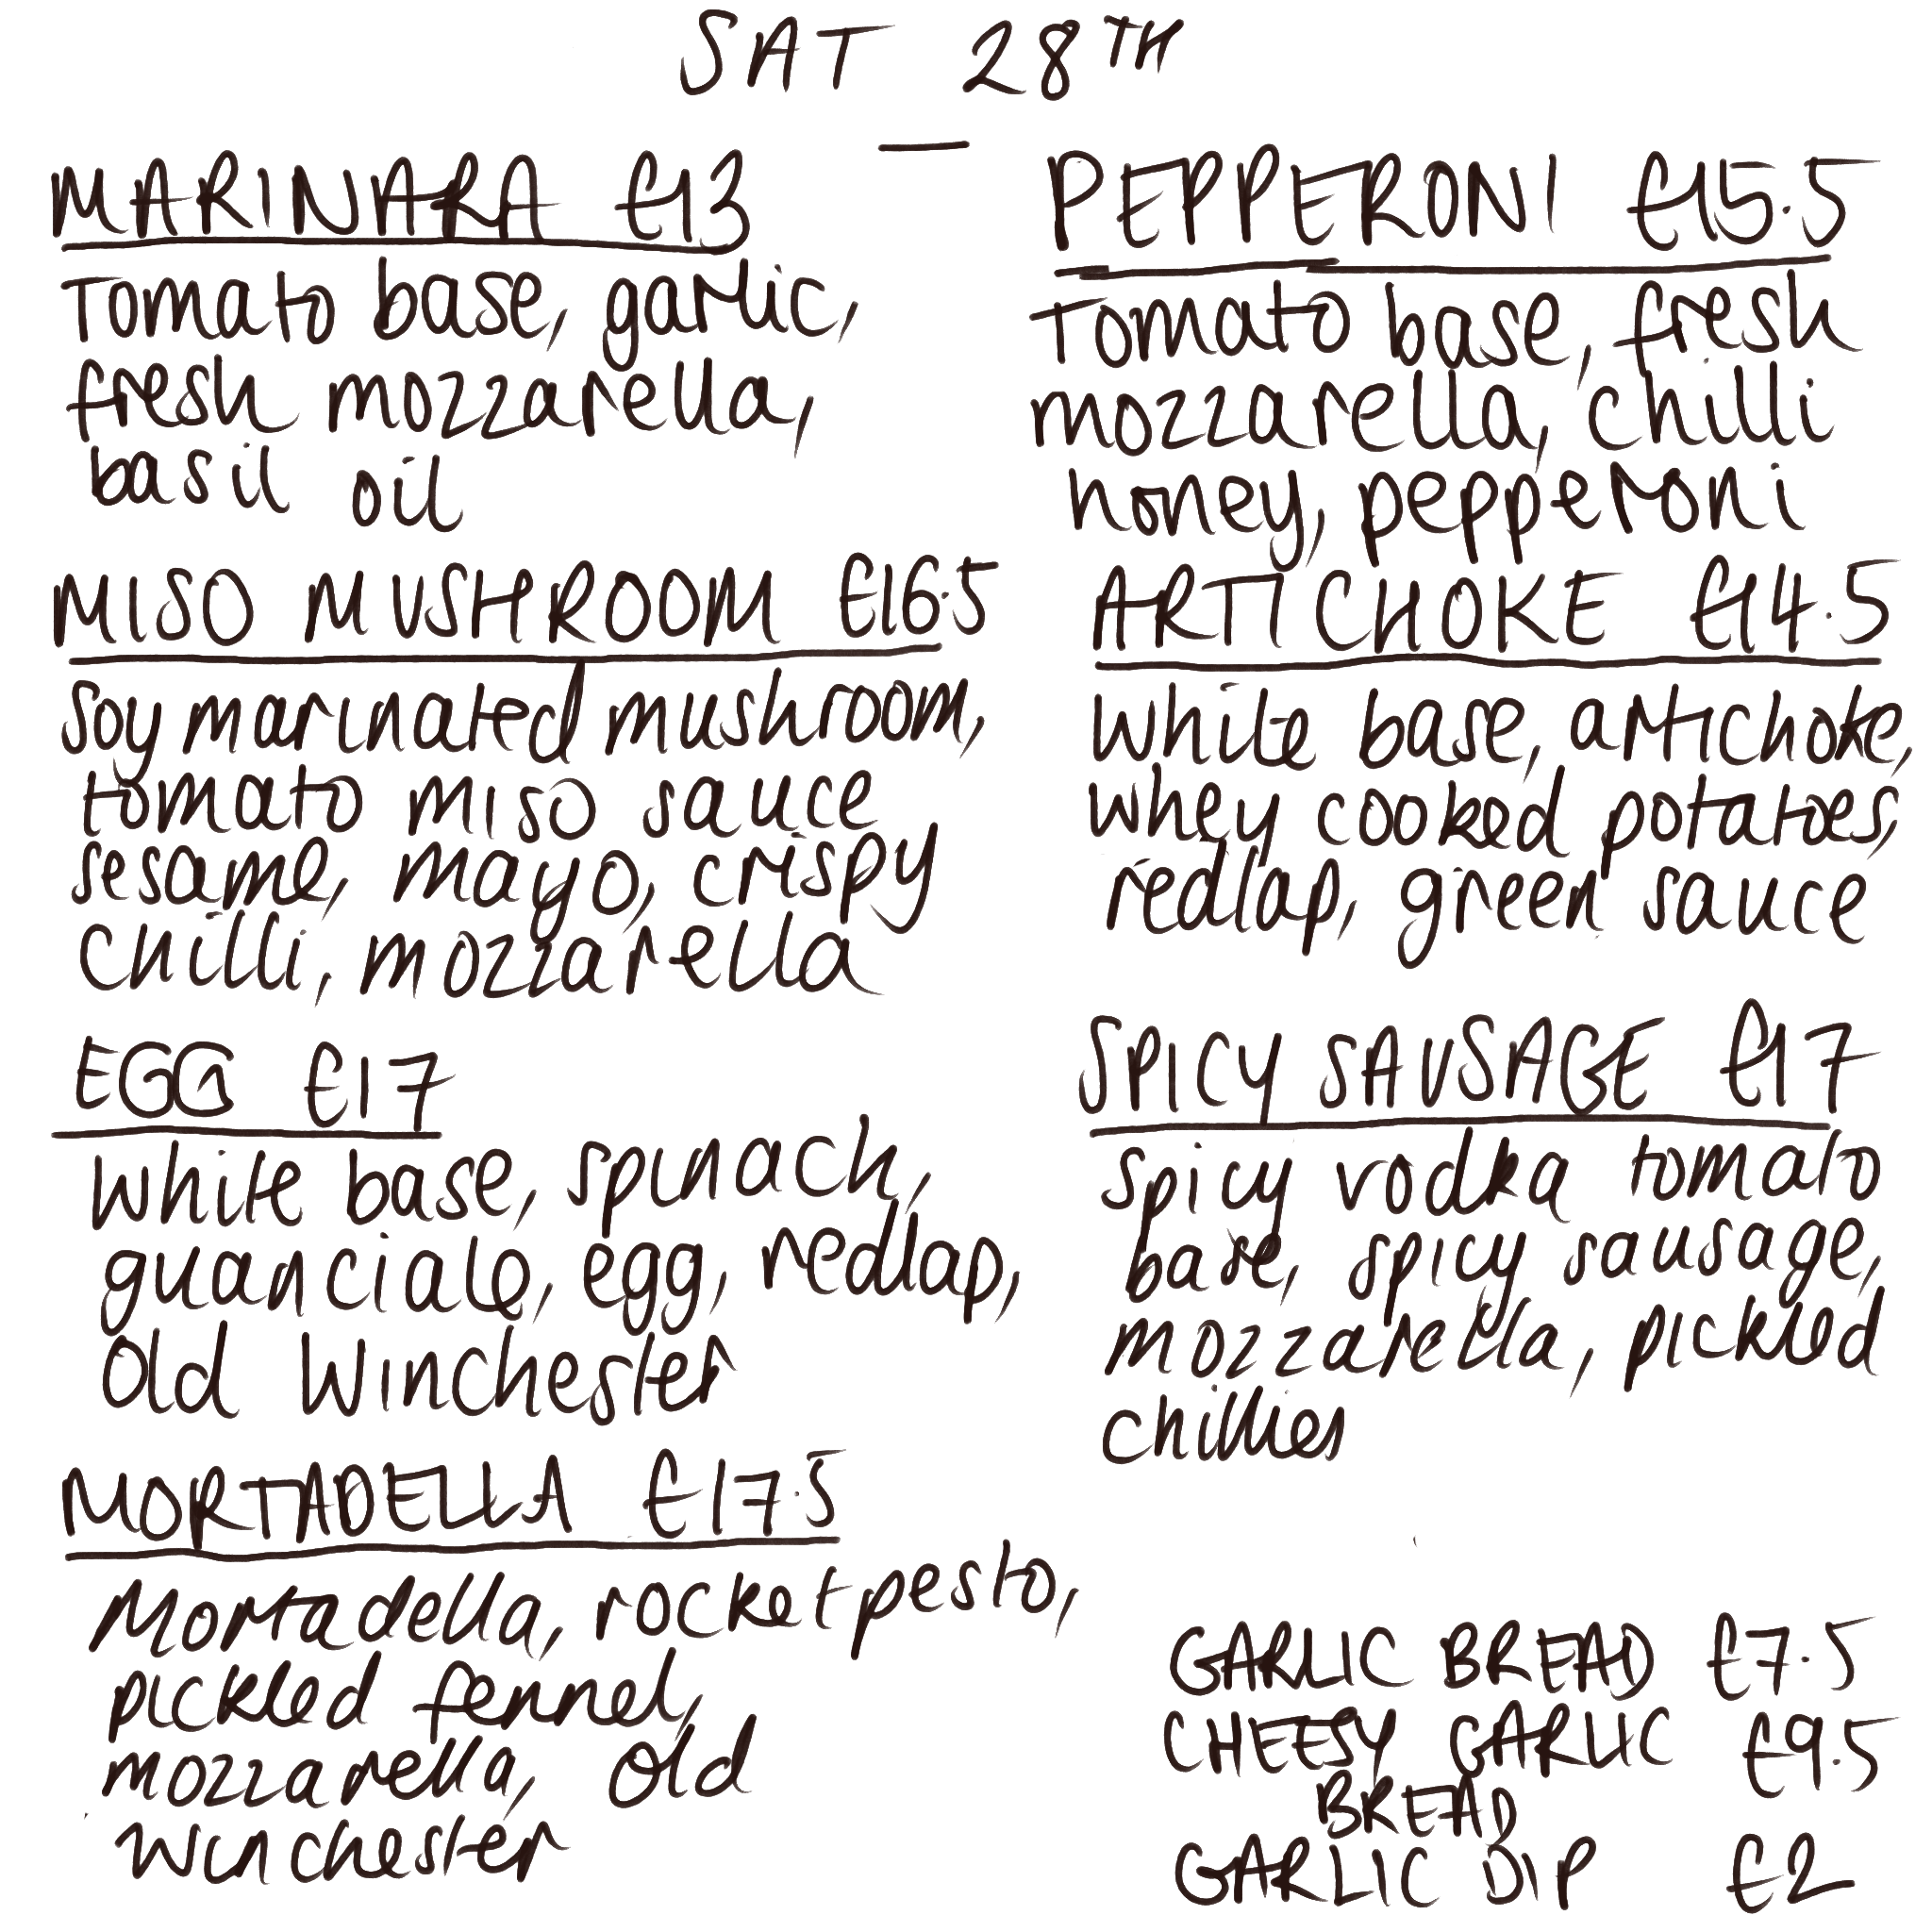 SAT 28TH
MARINARA £13
Tomato base, garlic,
fresh mozzarella,
basil oil
MISO MUSHROOM £16.5
Soy marinated mushroom,
tomato miso sauce
sesame, mayo, crispy
chilli, mozzarella
EGG £17
White base, spinach,
guanciale, egg, redlap,
Old Winchester
MORTADELLA £17.5
Mortadella, rocket pesto,
pickled fennel,
mozzarella, Old
Winchester
PEPPERONI £15.5
Tomato base, fresh
mozzarella, chilli
honey, pepperoni
ARTICHOKE £14.5
White base, artichoke,
whey cooked potatoes,
redlap, green sauce
SPICY SAUSAGE £17
Spicy vodka tomato
base, spicy sausage,
mozzarella, pickled
chillies
GARLIC BREAD £7.5
CHEESY GARLIC £9.5
BREAD
GARLIC DIP £2